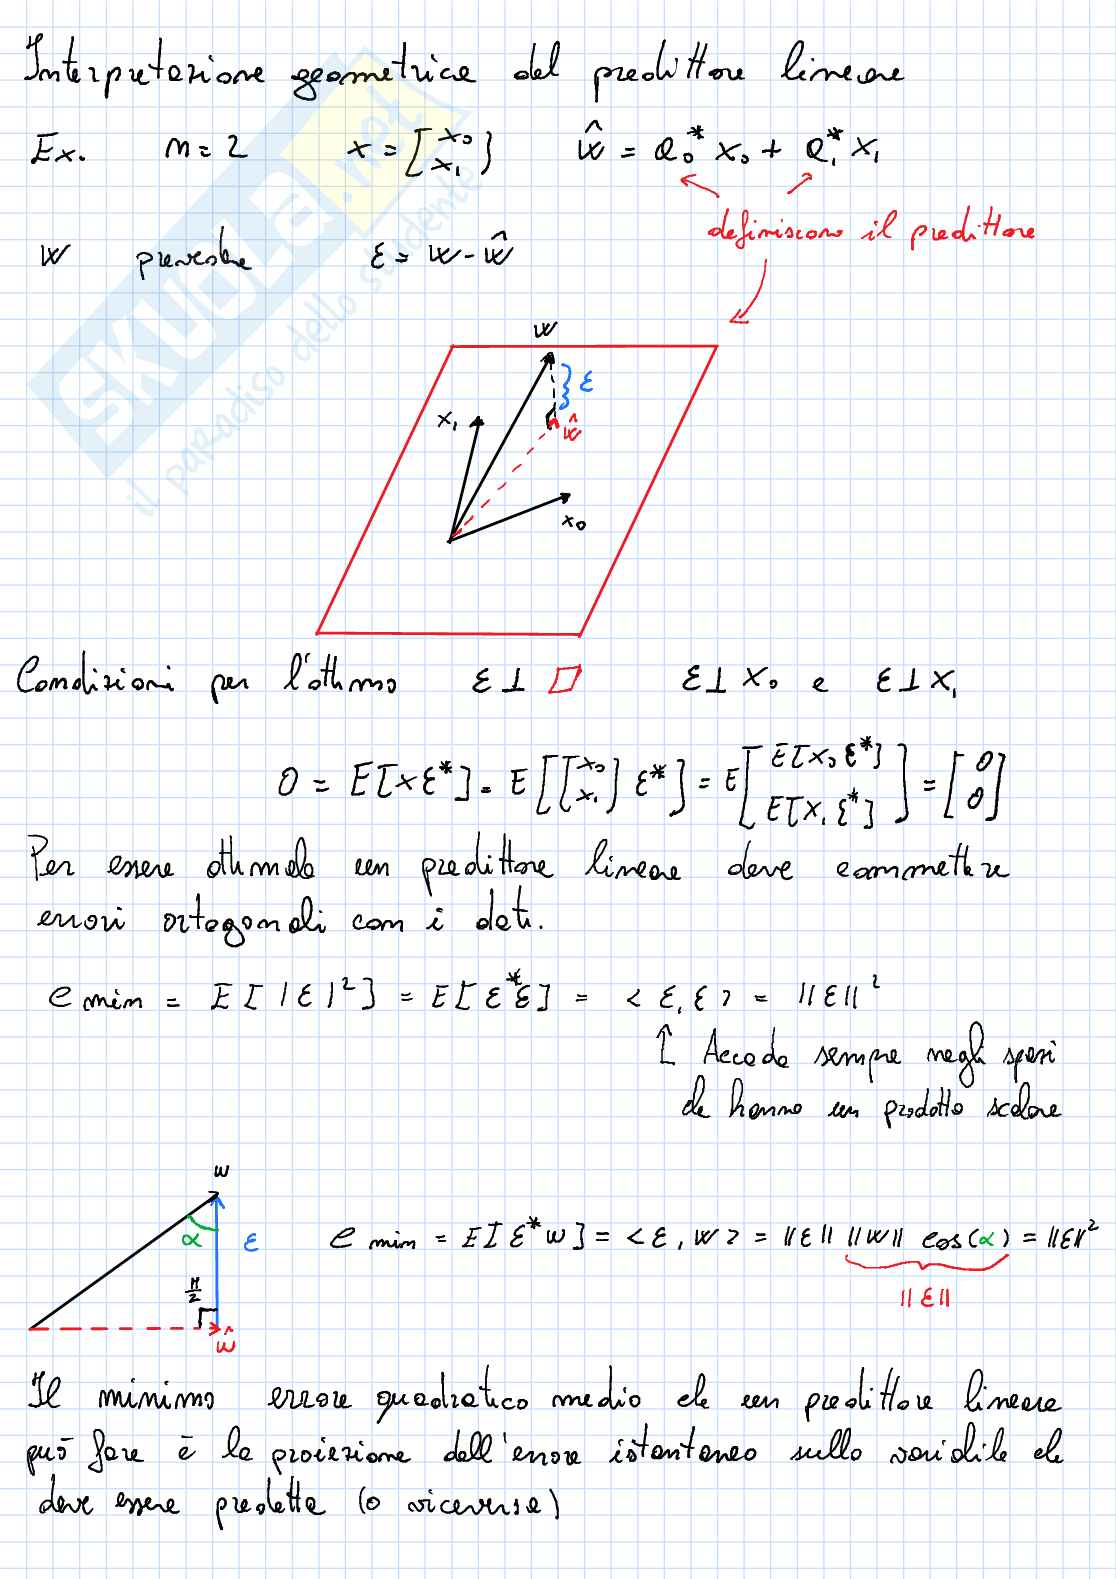 Interpretazione geometrica del predittore lineare
Ex. n=2 x=[x₀ x₁] ŵ = a₀* x₀ + a₁* x₁
definiscono il predittore
w prevedere ε = w-ŵ
w
ε
x₁
ŵ
x₀
Condizioni per l'ottimo ε⊥▱ ε⊥x₀ e ε⊥x₁
0 = E[xε*] = E[[x₀ x₁] ε*] = E[E[x₀ε*] E[x₁ε*]] = [0 0]
Per essere ottimale un predittore lineare deve commettere
errori ortogonali con i dati.
e min = E[|ε|²] = E[ε*ε] = <ε,ε> = ||ε||²
↑ Accade sempre negli spazi
che hanno un prodotto scalare
w
α ε
π/2
ŵ
e min = E[ε*w] = <ε,w> = ||ε|| ||w|| cos(α) = ||ε||²
||ε||
Il minimo errore quadratico medio che un predittore lineare
può fare è la proiezione dell'errore istantaneo sulla variabile che
deve essere predetta (o viceversa)
SKUOLA.net
il paradiso dello studente